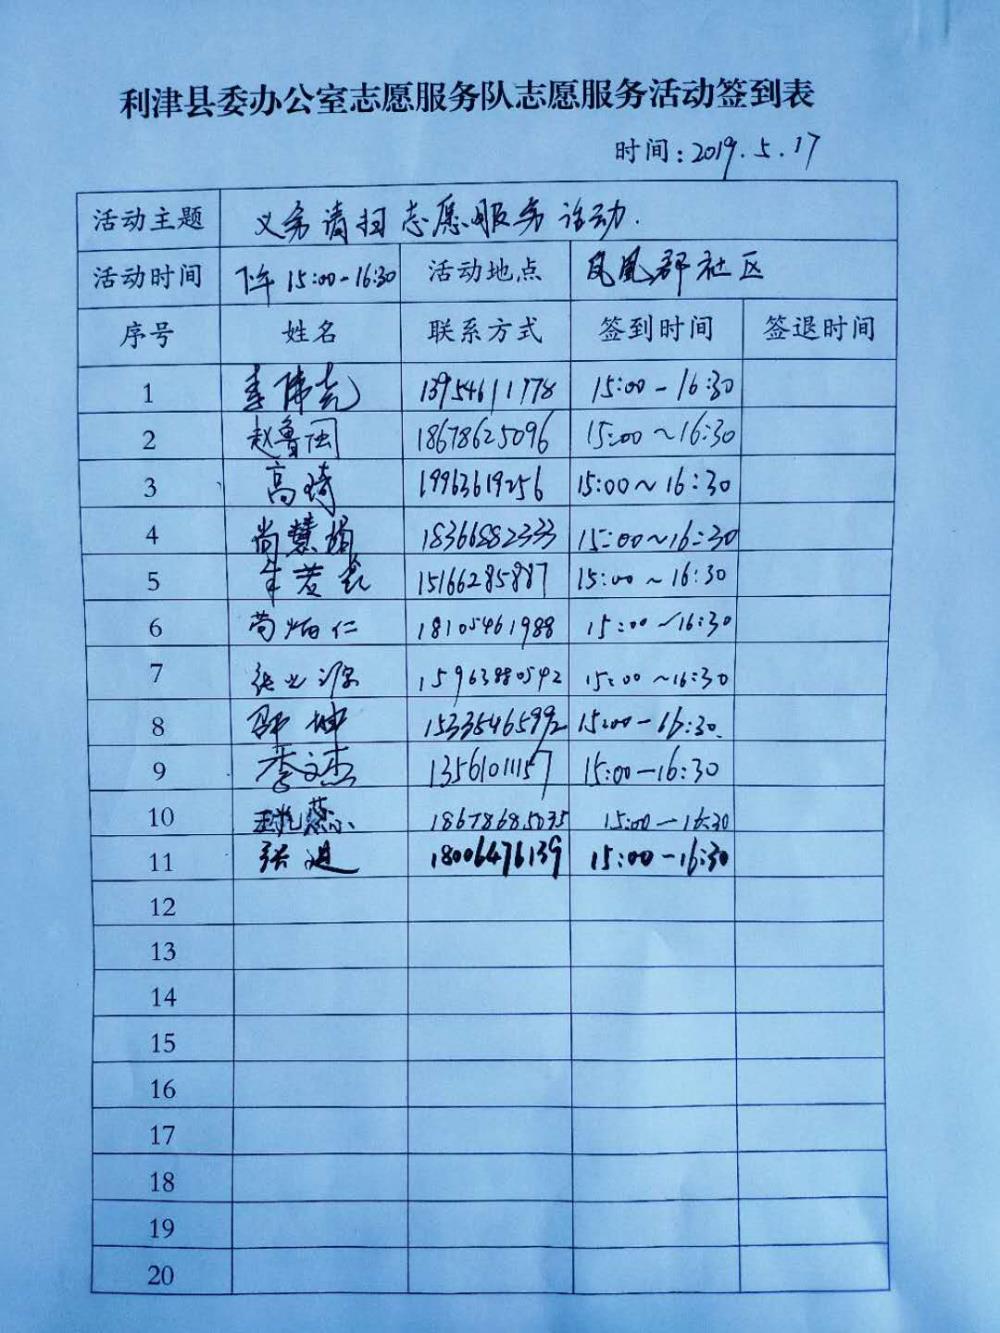 利津县委办公室志愿服务队志愿服务活动签到表
时间:2019.5.17
活动主题 义务请扫志愿服务活动.
活动时间 下午15:00-16:30 活动地点 凤凰郡社区
序号 姓名 联系方式 签到时间 签退时间
1 李伟尧 13954611778 15:00-16:30
2 赵鲁闽 18678625096 15:00~16:30
3 高琦 19963619256 15:00~16:30
4 尚慧娟 18366882333 15:00~16:30
5 15166285887 15:00~16:30
6 苟炳仁 18105461988 15:00~16:30
7 15963880592 15:00~16:30
8 坤 15335465992 15:00-16:30.
9 李文杰 13561011157 15:00-16:30
10 18678685035 15:00-16:30
11 张进 18006476139 15:00-16:30
12
13
14
15
16
17
18
19
20